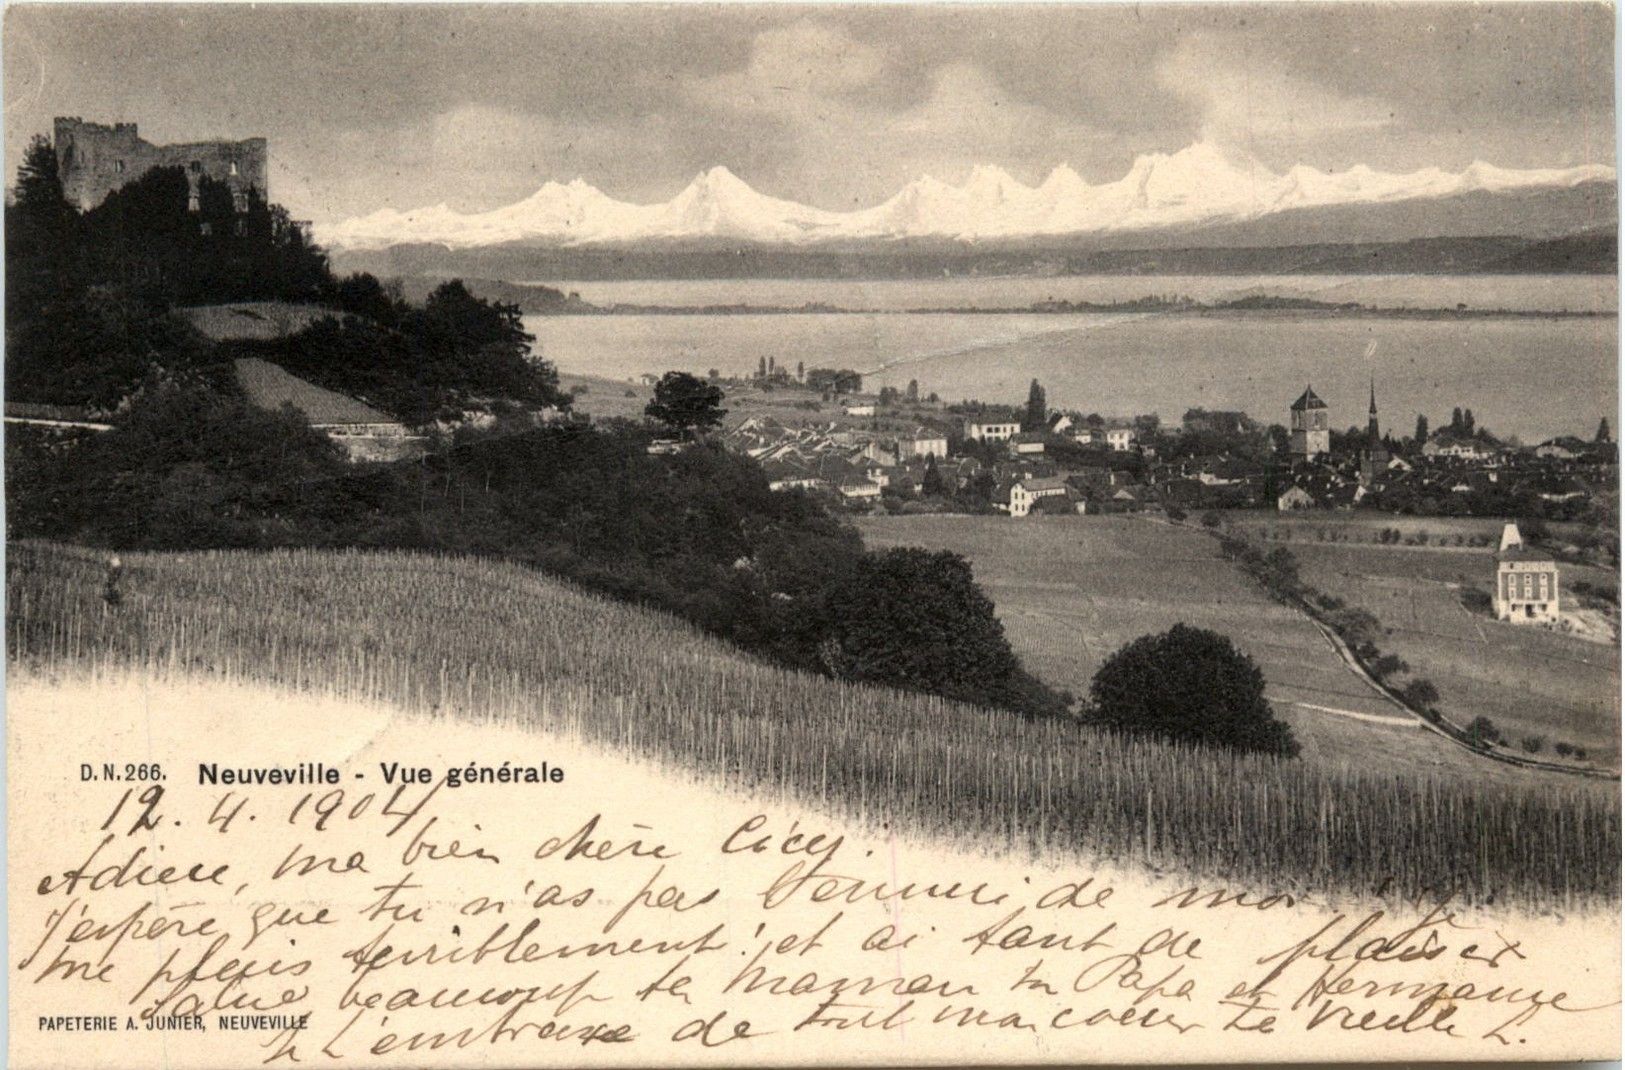 D.N.266. Neuveville - Vue générale
12. 4. 1904
Adieu, ma bien chère Cicy.
J'espère que tu n'as pas l'ennui de moi je
me plais terriblement! et ai tant de plaisir
Salue beaucoup ta Maman ton Papa et Hermance
PAPETERIE A. JUNIER, NEUVEVILLE
Je t'embrasse de tout mon coeur ta vieille L.